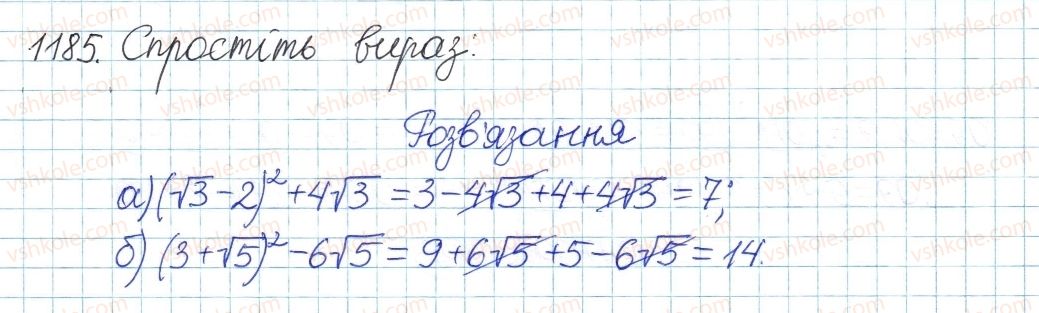 1185. Спростіть вираз:
Розв'язання
а) (√3 - 2)² + 4√3 = 3 - 4√3 + 4 + 4√3 = 7;
б) (3 + √5)² - 6√5 = 9 + 6√5 + 5 - 6√5 = 14.